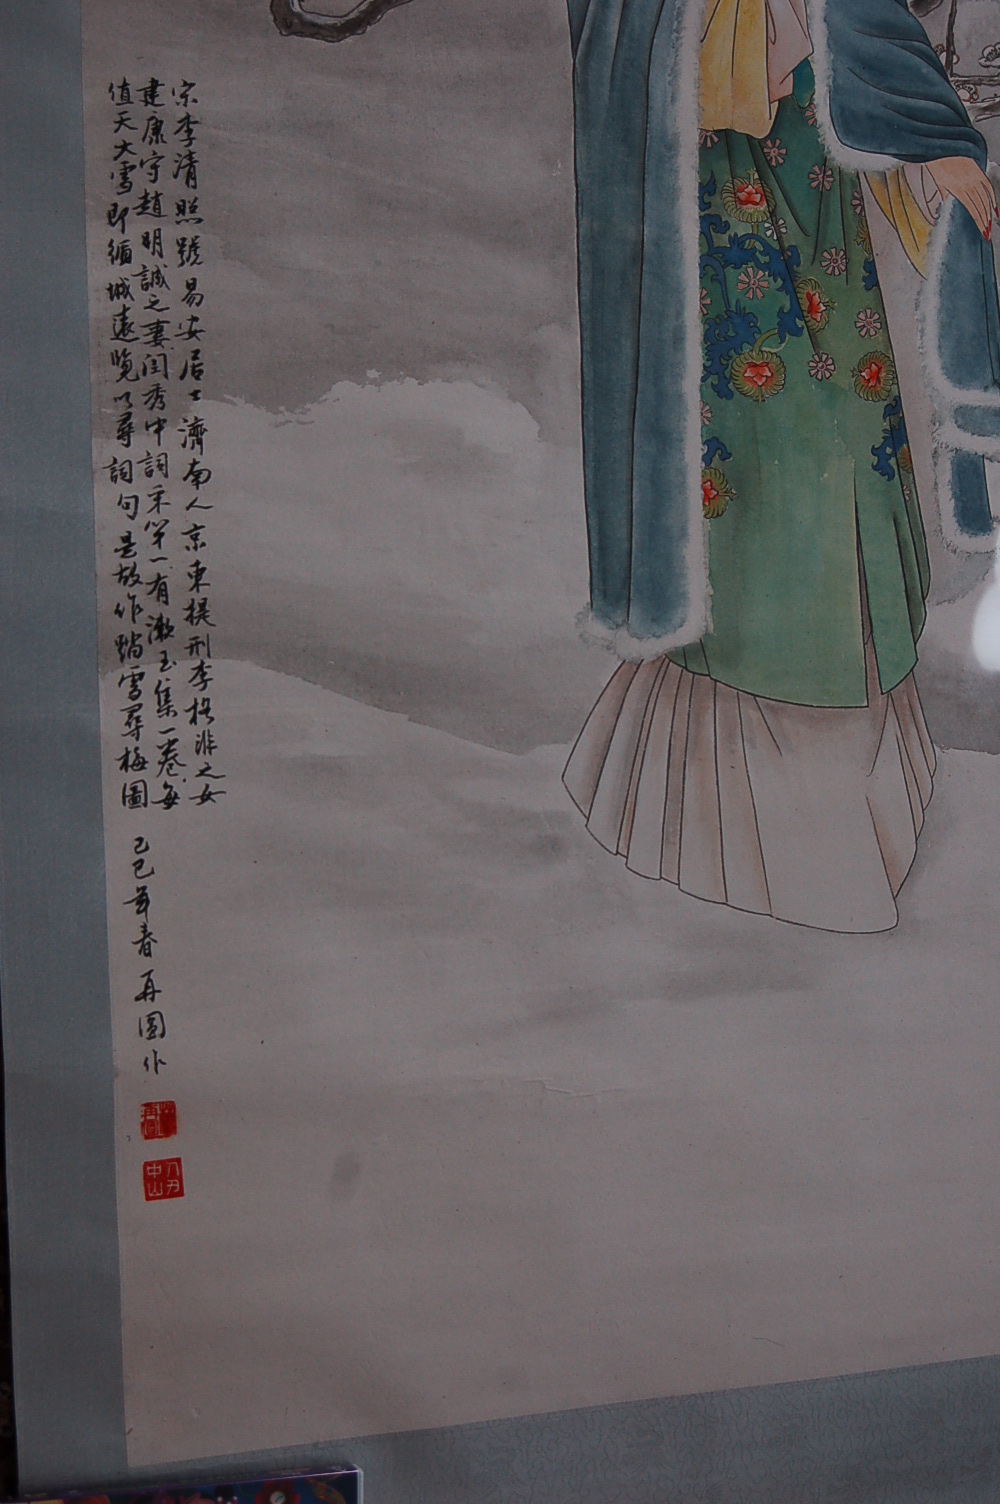 宗李清照號易安居士濟南人京東提刑李格非之女
建康守趙明誠之妻閨秀中詞采罕一有漱玉集一卷每
值天大雪即循城遠覽以尋詞句是故作踏雪尋梅圖
己巳年春再圖作
中山